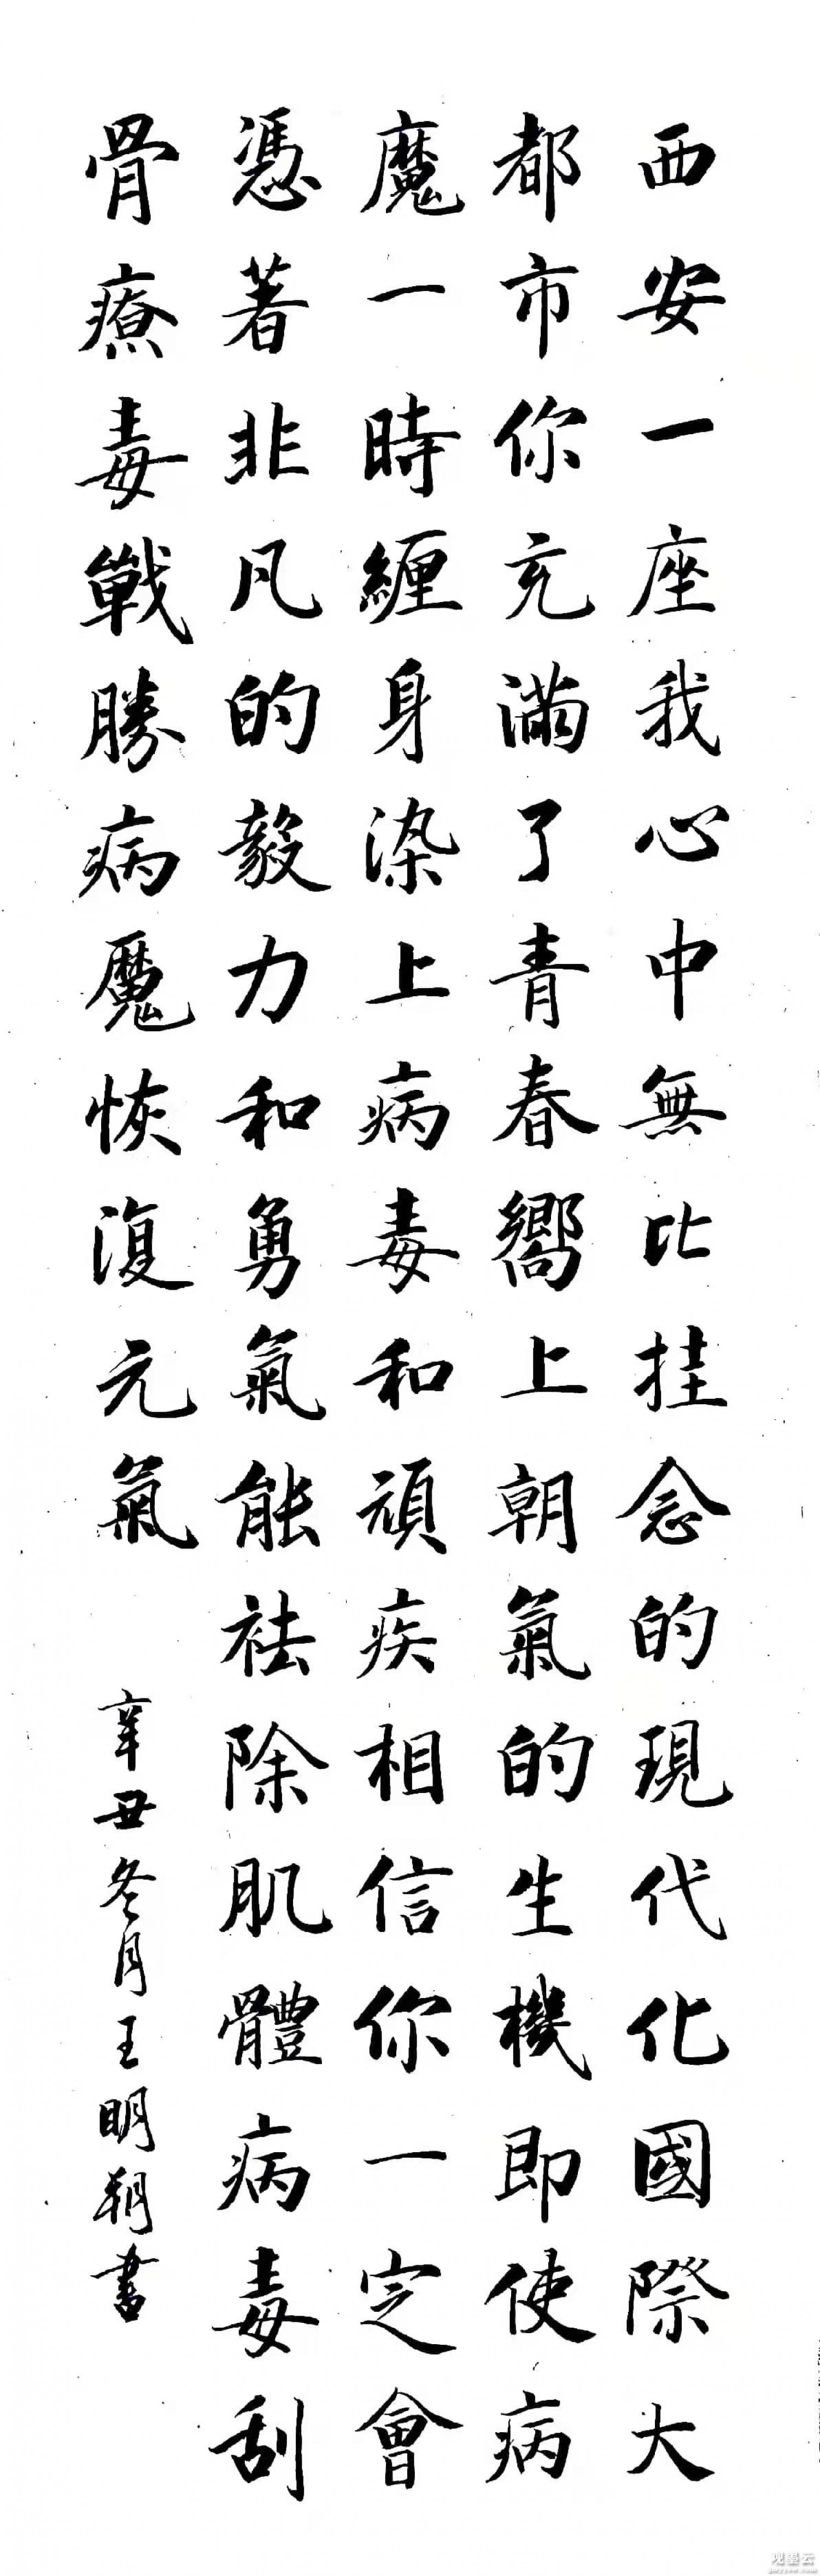 西安一座我心中無比挂念的現代化國際大
都市你充滿了青春嚮上朝氣的生機即使病
魔一時纏身染上病毒和頑疾相信你一定會
憑著非凡的毅力和勇氣能祛除肌體病毒刮
骨療毒戰勝病魔恢復元氣
辛丑冬月王明朔書
观墨云